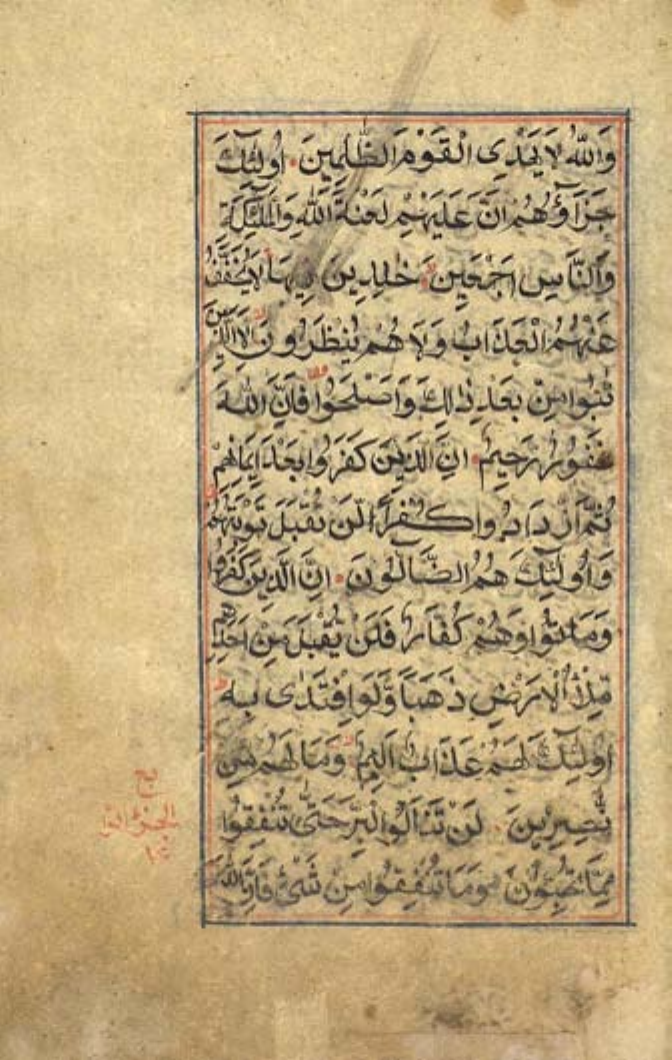 وَاللّٰهُ لَا يَهْدِى الْقَوْمَ الظّٰلِمِينَ اُولٰٓئِكَ
جَزَاؤُهُمْ اَنَّ عَلَيْهِمْ لَعْنَةَ اللّٰهِ وَالْمَلٰٓئِكَةِ
وَالنَّاسِ اَجْمَعِينَ خٰلِدِينَ فِيهَا لَا يُخَفَّفُ
عَنْهُمُ الْعَذَابُ وَلَا هُمْ يُنْظَرُونَ اِلَّا الَّذِينَ
تَابُوا مِنْ بَعْدِ ذٰلِكَ وَاَصْلَحُوا فَاِنَّ اللّٰهَ
غَفُورٌ رَحِيمٌ اِنَّ الَّذِينَ كَفَرُوا بَعْدَ اِيمَانِهِمْ
ثُمَّ ازْدَادُوا كُفْرًا لَنْ تُقْبَلَ تَوْبَتُهُمْ
وَاُولٰٓئِكَ هُمُ الضَّآلُّونَ اِنَّ الَّذِينَ كَفَرُوا
وَمَاتُوا وَهُمْ كُفَّارٌ فَلَنْ يُقْبَلَ مِنْ اَحَدِهِمْ
مِلْءُ الْاَرْضِ ذَهَبًا وَّلَوِ افْتَدٰى بِهِ
اُولٰٓئِكَ لَهُمْ عَذَابٌ اَلِيمٌ وَمَا لَهُمْ مِنْ
نٰصِرِينَ لَنْ تَنَالُوا الْبِرَّ حَتّٰى تُنْفِقُوا
مِمَّا تُحِبُّونَ وَمَا تُنْفِقُوا مِنْ شَىْءٍ فَاِنَّ اللّٰهَ